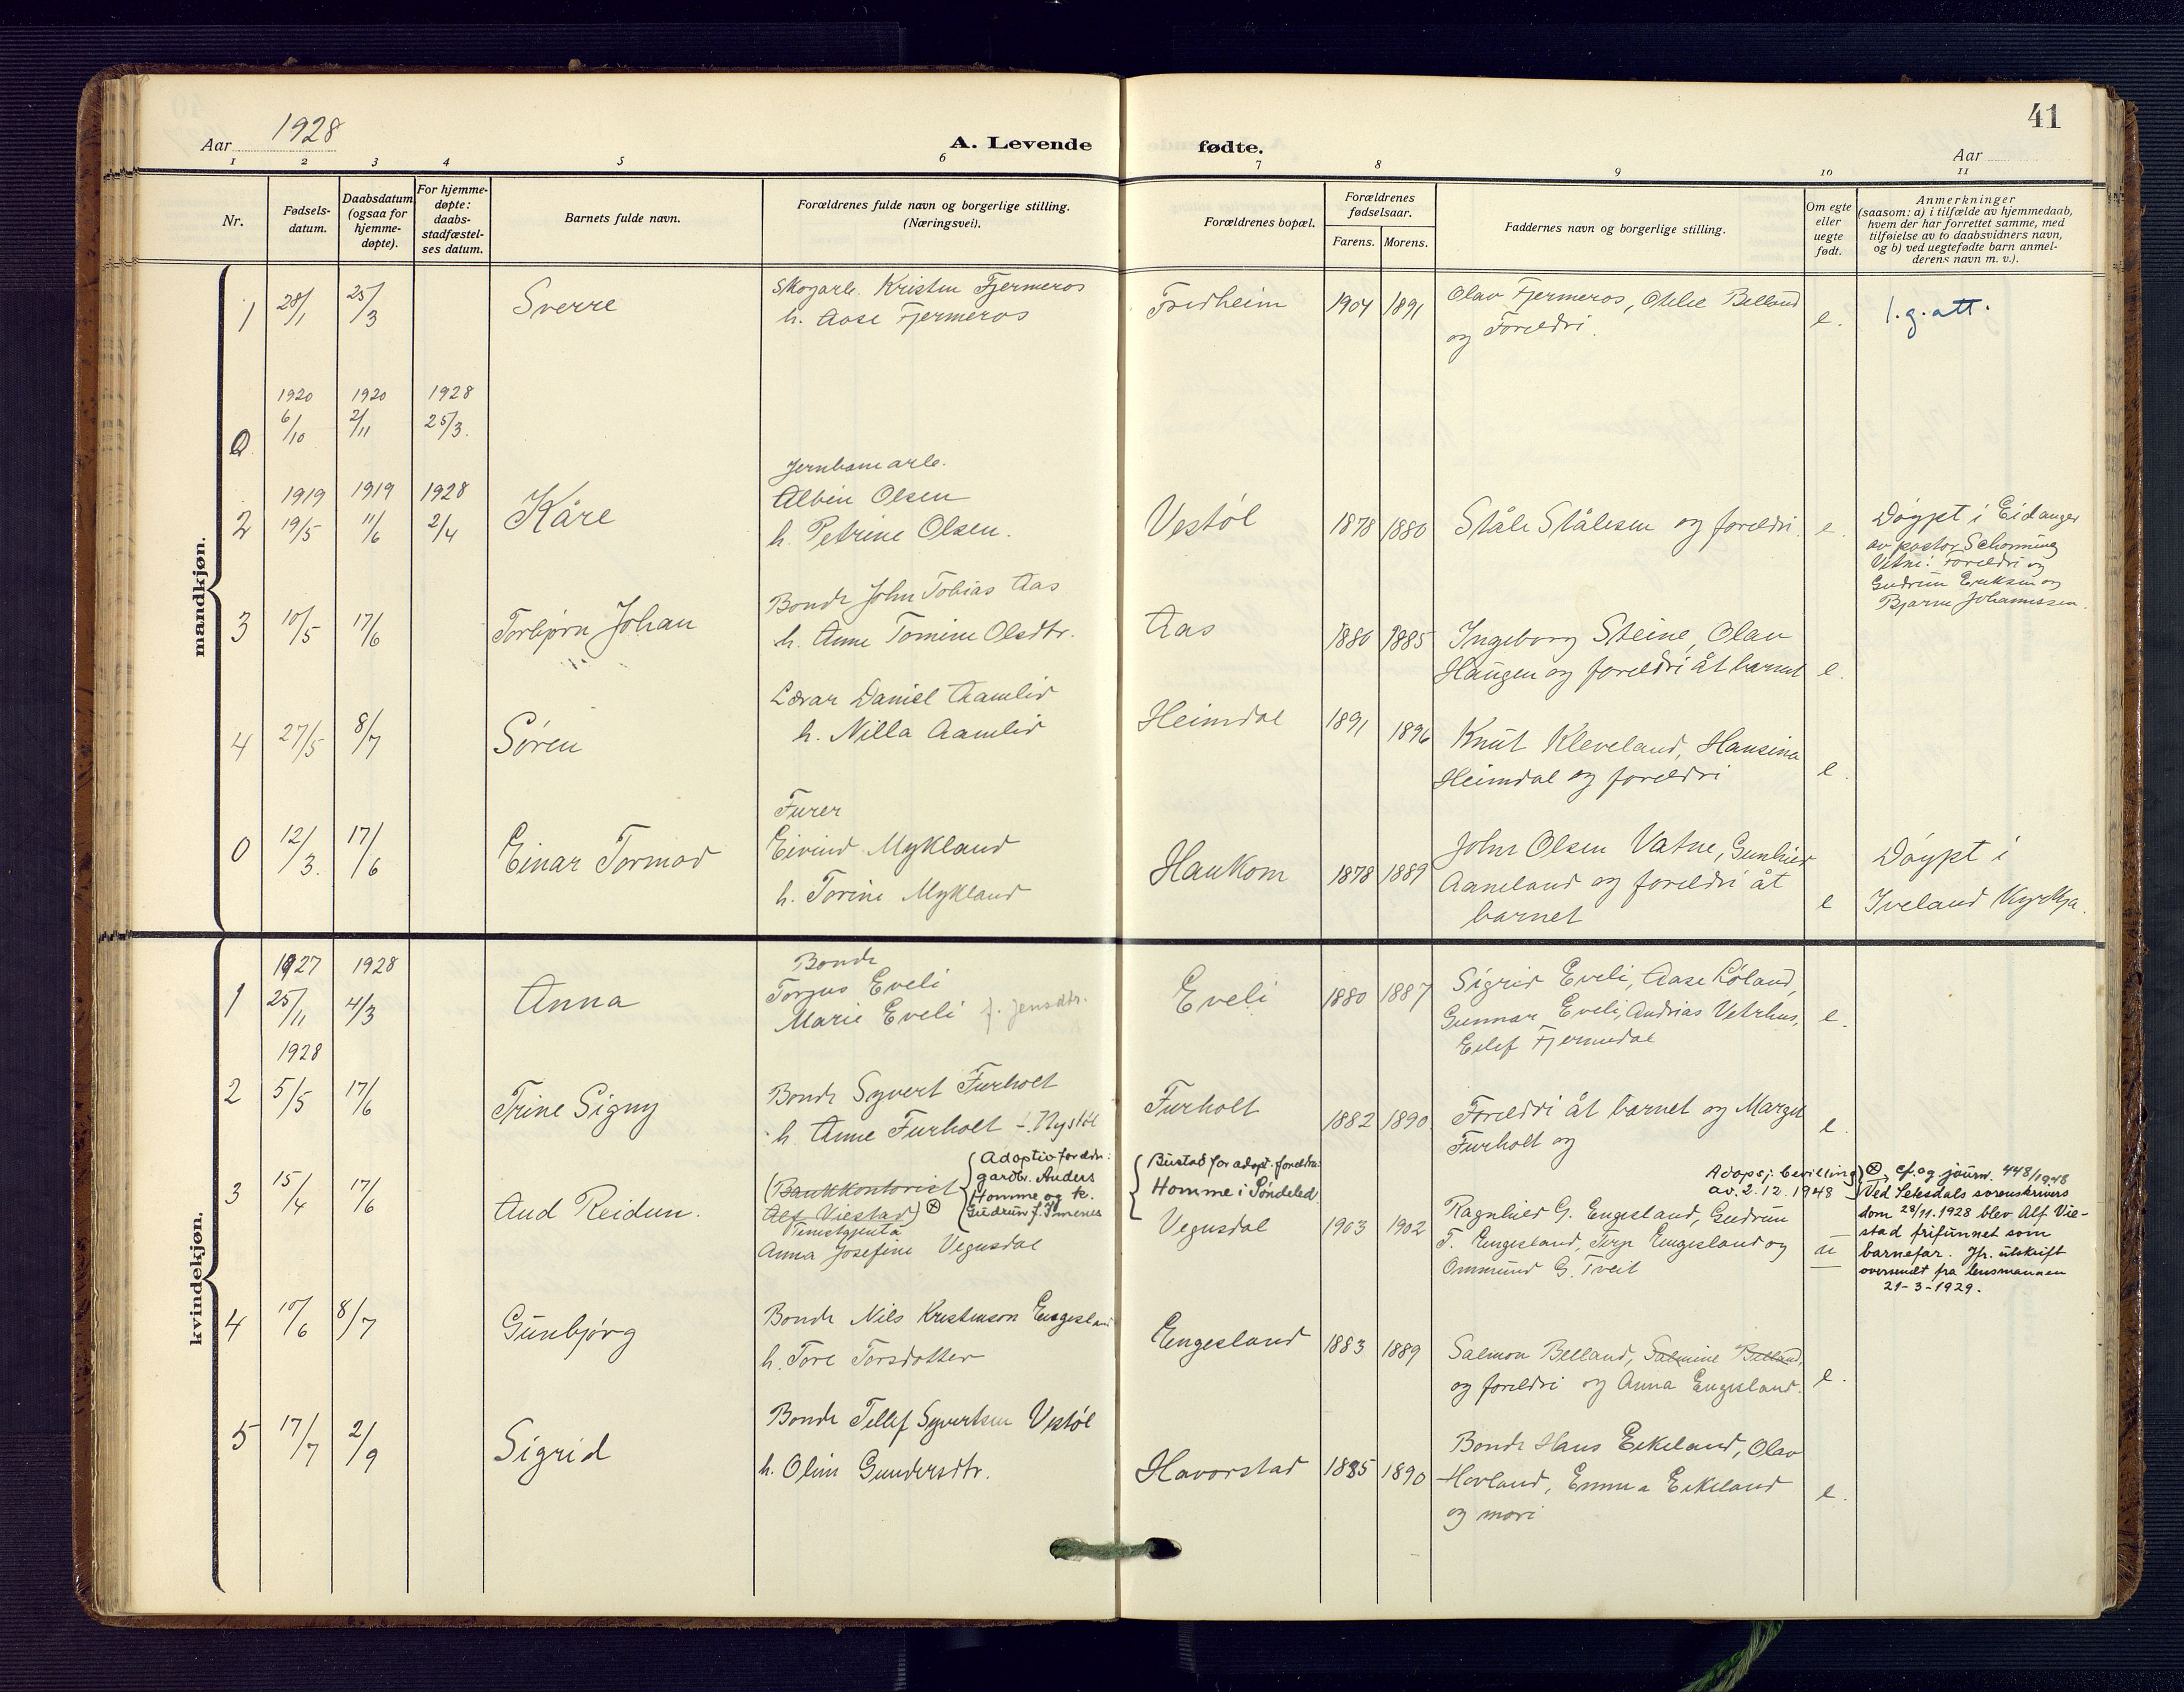 41
Aar 1928
A. Levende
fødte.
Aar
1 2 3 4 5 6 7 8 9 10 11
Nr.
Fødsels-
datum.
Daabsdatum
(ogsaa for
hjemme-
døpte).
For hjemme-
døpte:
daabs-
stadfæstel-
ses datum.
Barnets fulde navn.
Forældrenes fulde navn og borgerlige stilling.
(Næringsvei).
Forældrenes bopæl.
Forældrenes
fødselsaar.
Farens. Morens.
Faddernes navn og borgerlige stilling.
Om egte
eller
uegte
født.
Anmerkninger
(saasom: a) i tilfælde av hjemmedaab,
hvem der har forrettet samme, med
tilføielse av to daabsvidners navn,
og b) ved uegtefødte barn anmel-
derens navn m. v.).
mandkjøn.
1 28/1 25/3
Sverre
Skogarb. Kristen Fjermeros
h. Aase Fjermeros
Fredheim
1904 1891
Olav Fjermeros, Belland
og Foreldri.
e.
1. g. att.
1920 1920 1928
0 6/10 2/11 25/3.
1919 1919 1928
2 19/5 11/6 2/4
Kåre
Jernbanearb.
Albin Olsen
h. Petrine Olsen.
Vestöl
1878 1880
Ståle Stålesen og foreldri.
e.
Döypt i Eidanger
av pastor Schonning
Vitni: Foreldri og
Gudrun Eriksen og
Bjarne Johannssen.
3 10/5 17/6
Torbjørn Johan
Bonde John Tobias Aas
h. Anne Tomine Olsdtr.
Aas
1880 1885
Ingeborg Steine, Olav
Haugen og foreldri åt barnet
e.
4 27/5 8/7
Søren
Lærar Daniel Aamlid
h. Nilla Aamlid
Heimdal
1891 1896
Knut Kleveland, Hansina
Heimdal og foreldri
e.
0 12/3. 17/6
Einar Tormod
Furer
Eivind Mykland
h. Torine Mykland
Haukom
1878 1889
John Olsen Vatne, Gunhild
Aaneland og foreldri åt
barnet
e
Döypt i
Iveland Kyrkja.
kvindekjøn.
1927 1928
1 25/11 4/3
Anna
Bonde
Torjus Eveli
Marie Eveli f. Jensdtr.
Eveli
1880 1887
Sigrid Eveli, Aase Löland,
Gunnar Eveli, Andrias Vetrhus,
Eilef Fjermedal
e.
1928
2 5/5 17/6
Trine Signy
Bonde Syvert Furholt
h. Anne Furholt f. Nystöl
Furholt
1882 1890
Foreldri åt barnet og Margit
Furholt og
e.
3 15/4 17/6
Aud Reidun.
(Bankkontorist
Alf Viestad) ⊗
Tenestgjenta
Anna Josefine Vegusdal
Adoptivforeldr:
gardbr. Anders
Homme og k.
Gudrun f. Imenes
Bustad for adopt. foreldre:
Homme i Söndeled
Vegusdal
1903 1902
Ragnhild G. Engesland, Gudrun
T. Engesland, Terje Engesland og
Ommund G. Tveit
u
Adopsj. bevilling
av 2.12.1948
⊗ cf. og journ. 448/1948
Ved Setesdals sorenskrivers
dom 28/11.1928 blev Alf Vie-
stad frifunnet som
barnefar. Jfr. utskrift
oversendt fra lensmannen
21-3-1929.
4 10/6 8/7
Gunbjörg
Bonde Nils Kristenson Engesland
h. Tore Torsdotter
Engesland
1883 1889
Salmon Belland, Salmine Belland,
og foreldri og Anna Engesland.
e.
5 17/7 2/9
Sigrid
Bonde Tellef Syvertsen Vestöl
h. Oline Gundersdtr.
Havorstad
1885 1890
Bonde Hans Eikeland, Olav
Hovland, Emma Eikeland
og mori
e.